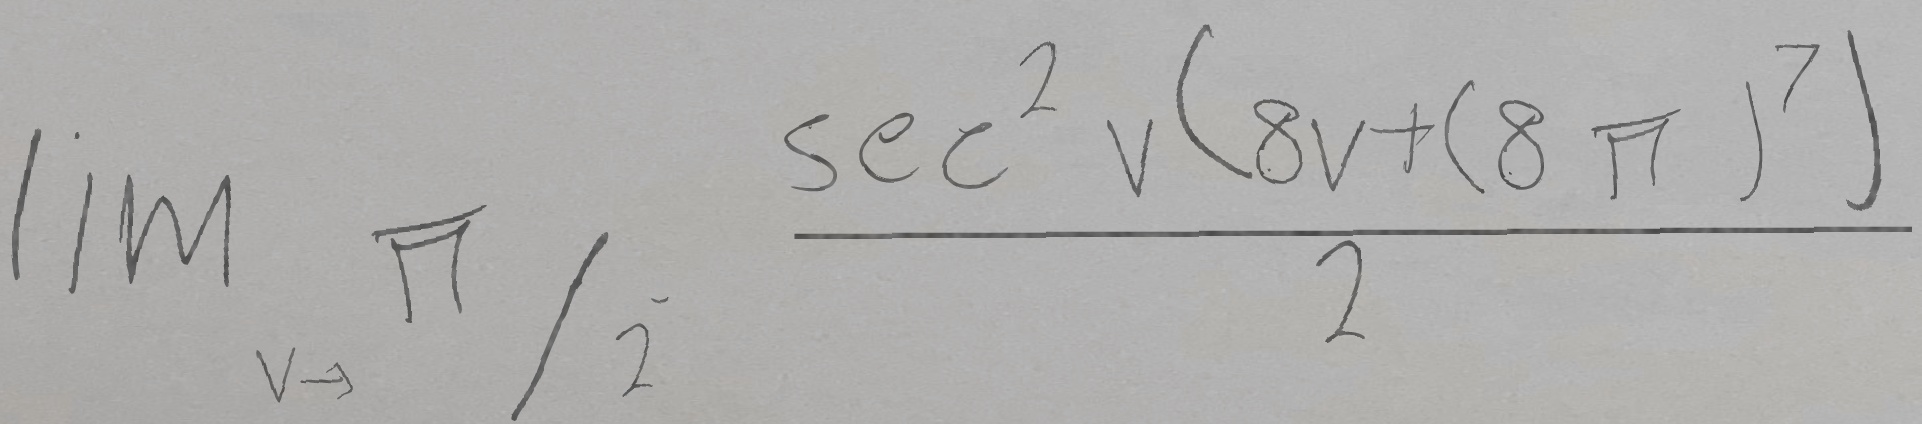 lim_{v→π/2⁻} \frac{sec² v(8v+(8π)⁷)}{2}